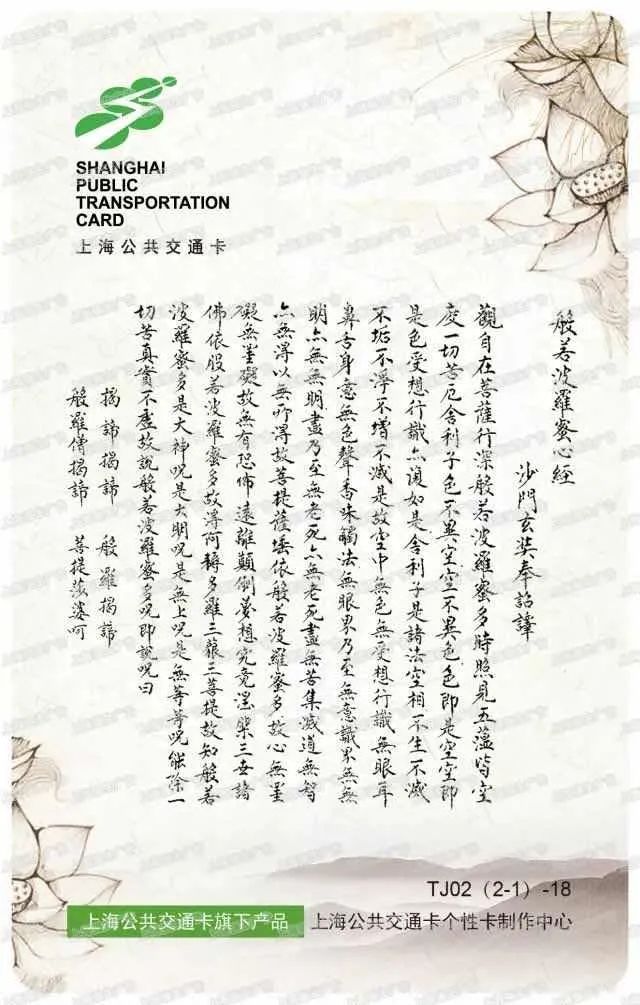 SHANGHAI
PUBLIC
TRANSPORTATION
CARD
上海公共交通卡
般若波羅蜜心經
沙門玄奘奉詔譯
觀自在菩薩行深般若波羅蜜多時照見五蘊皆空
度一切苦厄舍利子色不異空空不異色色即是空空即
是色受想行識亦復如是舍利子是諸法空相不生不滅
不垢不淨不增不減是故空中無色無受想行識無眼耳
鼻舌身意無色聲香味觸法無眼界乃至無意識界無無
明亦無無明盡乃至無老死亦無老死盡無苦集滅道無智
亦無得以無所得故菩提薩埵依般若波羅蜜多故心無罣
礙無罣礙故無有恐怖遠離顛倒夢想究竟涅槃三世諸
佛依般若波羅蜜多故得阿耨多羅三藐三菩提故知般若
波羅蜜多是大神咒是大明咒是無上咒是無等等咒能除一
切苦真實不虛故說般若波羅蜜多咒即說咒曰
揭諦揭諦 般羅揭諦
般羅僧揭諦 菩提莎婆呵
TJ02（2-1）-18
上海公共交通卡旗下产品 上海公共交通卡个性卡制作中心